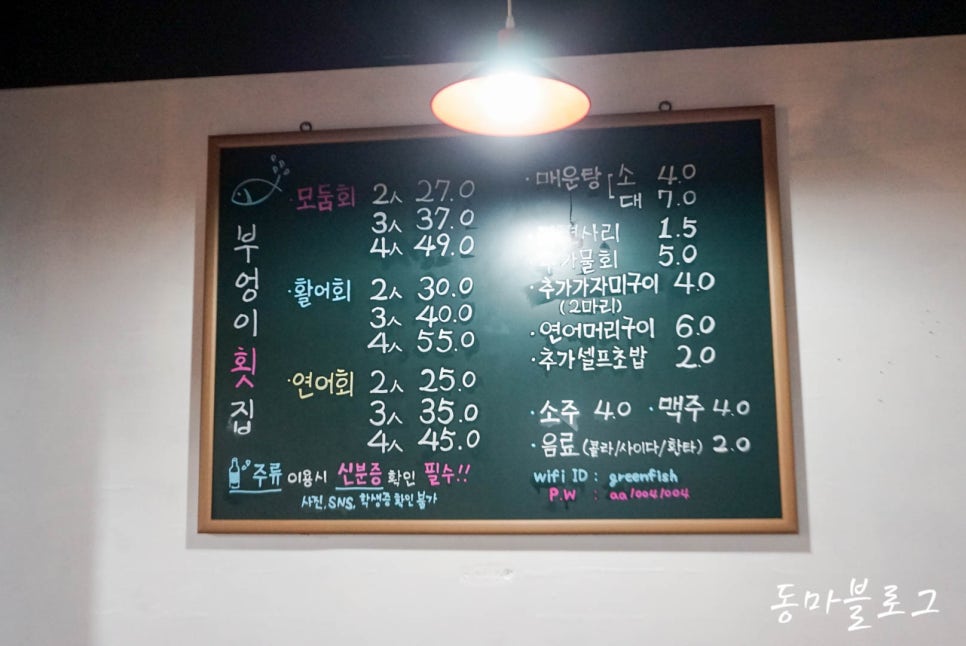 부엉이횟집
모둠회 2人 27.0
3人 37.0
4人 49.0
·활어회 2人 30.0
3人 40.0
4人 55.0
·연어회 2人 25.0
3人 35.0
4人 45.0
주류 이용시 신분증 확인 필수!!
사진, SNS, 학생증 확인 불가
·매운탕 소 4.0
대 7.0
사리 1.5
추가물회 5.0
·추가가자미구이 4.0
(2마리)
·연어머리구이 6.0
·추가셀프초밥 2.0
·소주 4.0 ·맥주 4.0
·음료 (콜라/사이다/환타) 2.0
wifi ID : greenfish
P.W : aa10041004
동마블로그